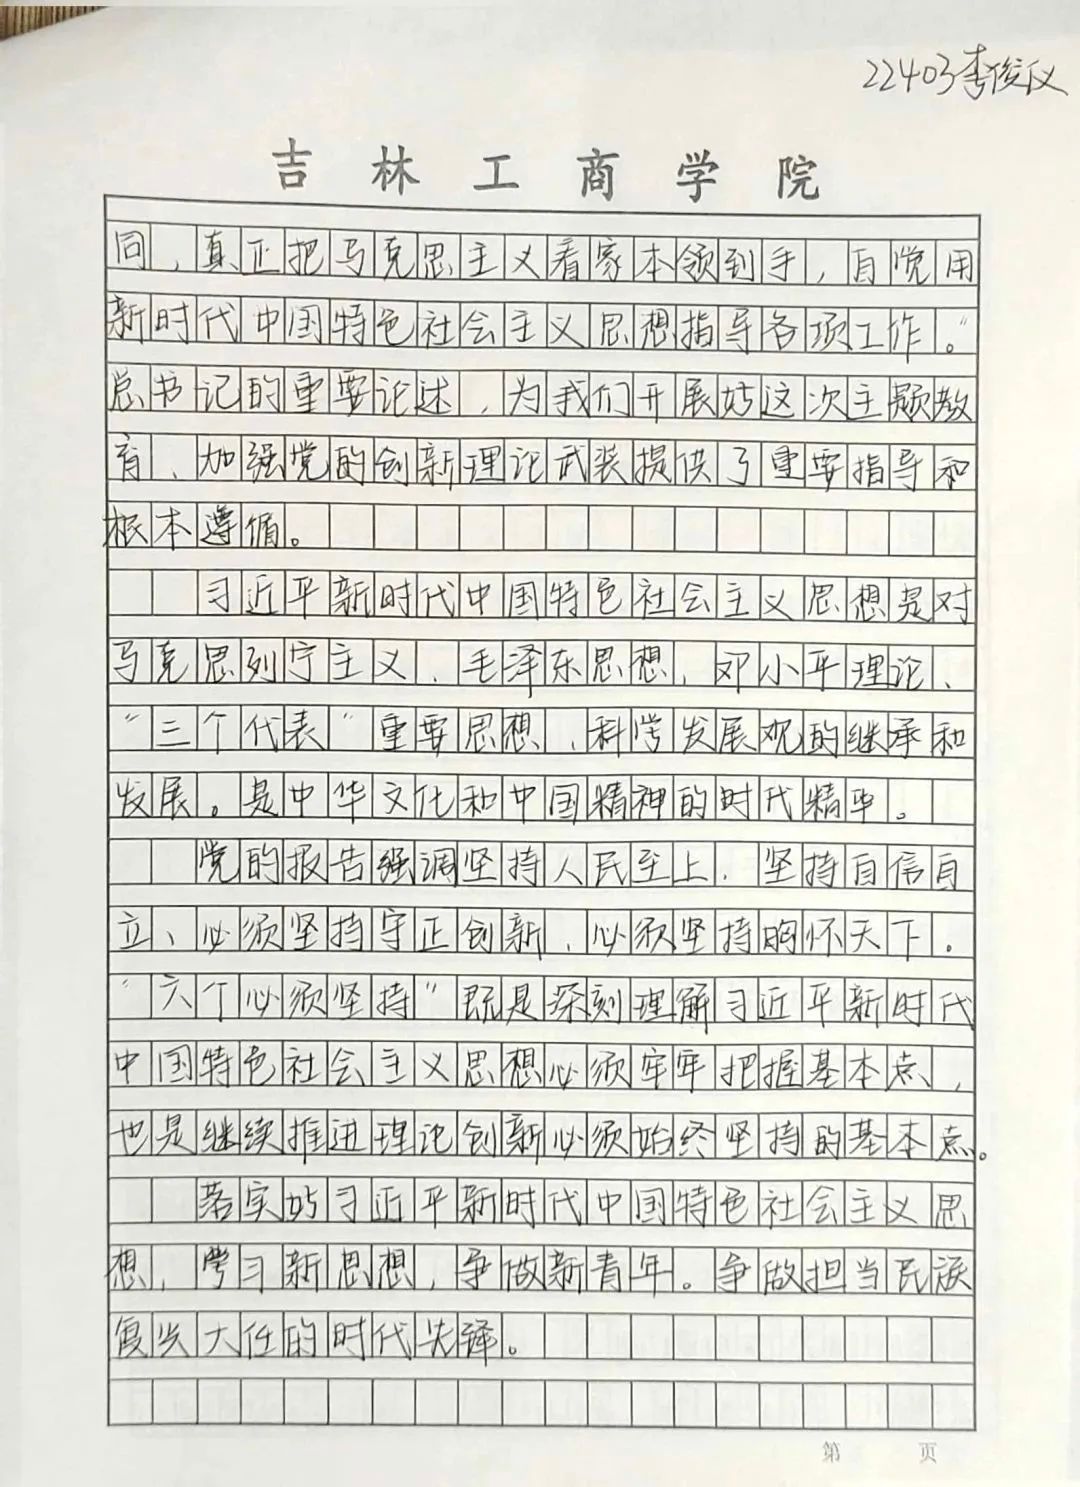 22403李俊仪
吉林工商学院
同,真正把马克思主义看家本领到手,自觉用
新时代中国特色社会主义思想指导各项工作。"
总书记的重要论述,为我们开展好这次主题教
育、加强党的创新理论武装提供了重要指导和
根本遵循。
习近平新时代中国特色社会主义思想是对
马克思列宁主义、毛泽东思想、邓小平理论、
"三个代表"重要思想、科学发展观的继承和
发展。是中华文化和中国精神的时代精华。
党的报告强调坚持人民至上、坚持自信自
立、必须坚持守正创新、必须坚持胸怀天下。
"六个必须坚持"既是深刻理解习近平新时代
中国特色社会主义思想必须牢牢把握基本点,
也是继续推进理论创新必须始终坚持的基本点。
落实好习近平新时代中国特色社会主义思
想,学习新思想,争做新青年。争做担当民族
复兴大任的时代先锋。
第 页